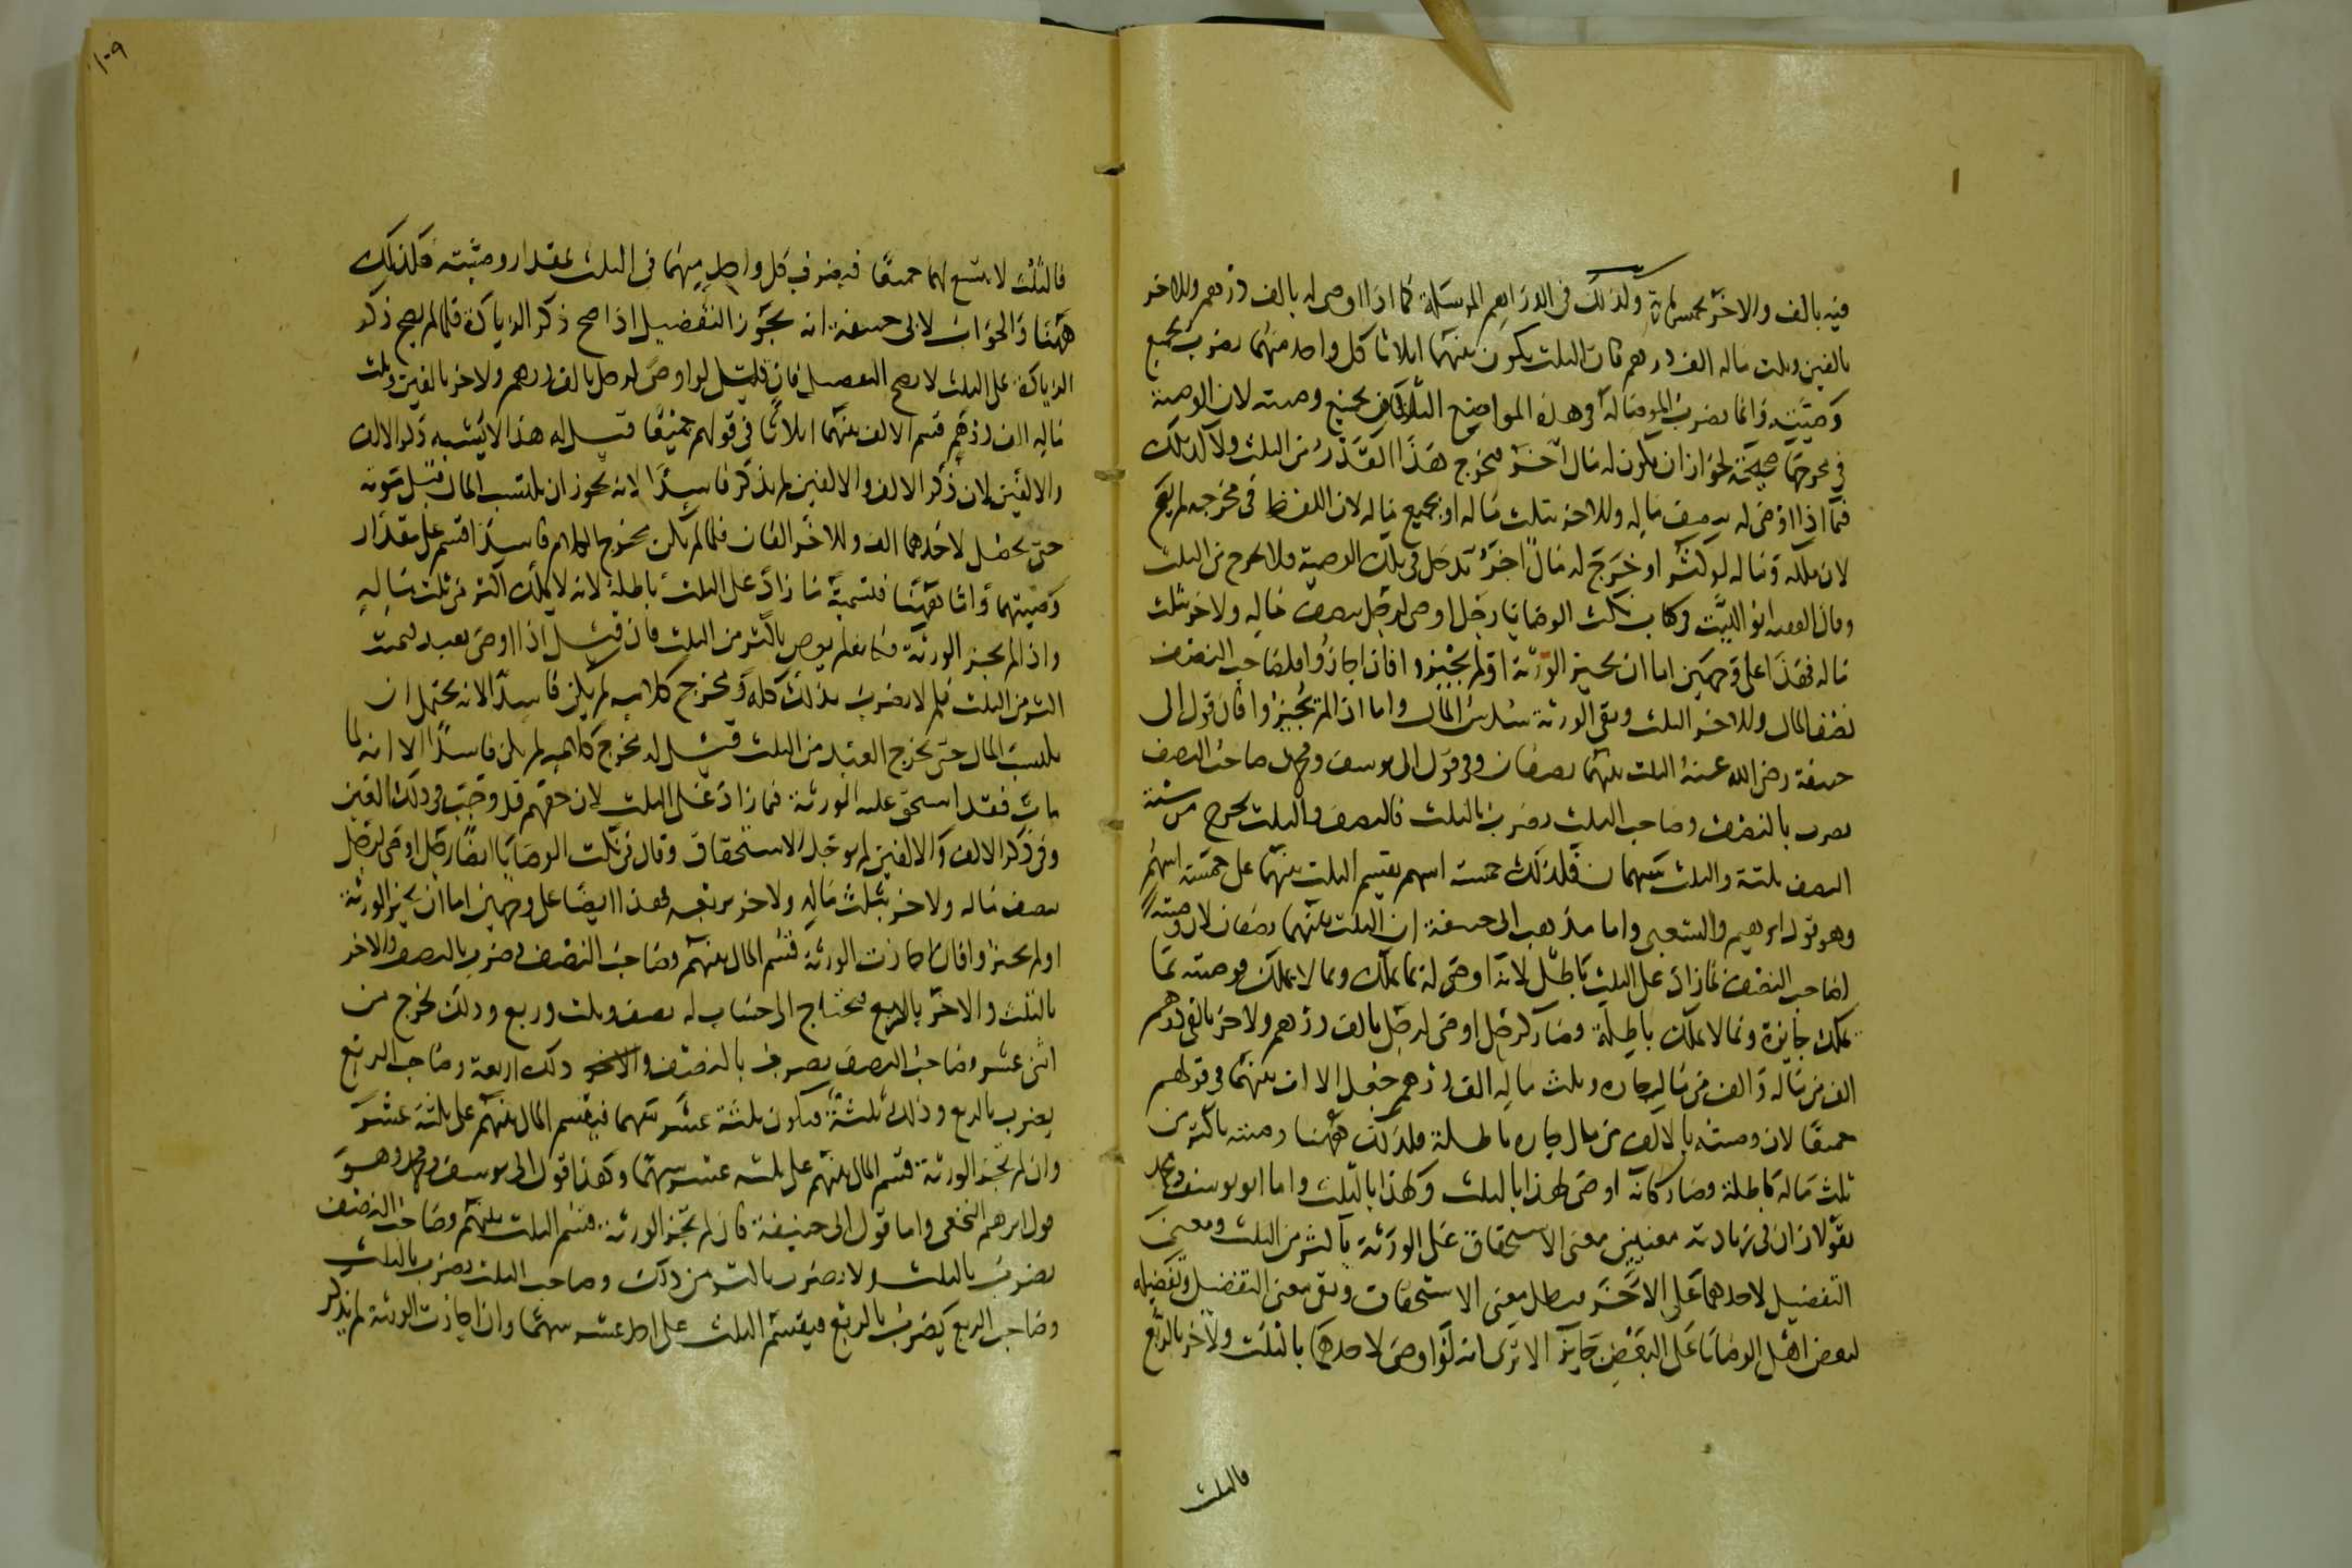 فيه بالف والاخر بخمسمائة ولذلك في الدراهم المرسلة كما اذا اوصى له بالف درهم وللاخر
بالفين وثلث ماله الف درهم كان الثلث يكون بينهما اثلاثا كل واحد منهما يضرب بجميع
وصيته وانما يضرب الموصا له في هذه المواضع الثلاث بجميع وصيته لان الوصية
في مخرجها صحيحة لجواز ان يكون له مال اخر فيخرج هذا القدر من الثلث ولا كذلك
فيما اذا اوصى له بنصف ماله وللاخر بثلث ماله او بجميع ماله لان اللفظ في مخرجه لم يقع
لان ملكه وماله لو كثر او خرج له مال اخر تدخل في تلك الوصية ولا يخرج من الثلث
وقال الفقيه ابو الليث في كتاب نكت الوصايا رجل اوصى لرجل بنصف ماله ولاخر بثلث
ماله فهذا على وجهين اما ان يجيز الورثة او لم يجيزوا فان اجازوا فلصاحب النصف
نصف المال وللاخر الثلث وبقى الورثة سدس المال واما اذا لم يجيزوا فان قول ابى
حنيفة رضى الله عنه الثلث بينهما نصفان وفى قول ابى يوسف ومحمد صاحب النصف
يضرب بالنصف وصاحب الثلث يضرب بالثلث فالنصف والثلث يخرج من ستة
النصف ثلثة والثلث سهمان فلذلك خمسة اسهم يقسم الثلث بينهما على خمسة اسهم
وهو قول ابرهيم والشعبى واما مذهب ابى حنيفة ان الثلث بينهما نصفان لان وصية
لصاحب النصف بما زاد على الثلث باطل لانه اوصى له بما يملك وبما لا يملك فوصيته بما
يملك جائزة وبما لا يملك باطلة وصار كرجل اوصى لرجل بالف درهم ولاخر بالفى درهم
الف من ماله والف من مال جاره وثلث ماله الف درهم جعل الالف بينهما في قولهم
جميعا لان وصيته بالالف من مال جاره باطلة فلذلك ههنا وصيته باكثر من
ثلث ماله باطلة وصار كانه اوصى لهذا بالثلث ولهذا بالثلث واما ابو يوسف ومحمد
يقولان ان في زيادته معنيين معنى الاستحقاق على الورثة باكثر من الثلث ومعنى
التفضيل لاحدهما على الاخر فبطل معنى الاستحقاق وبقى معنى التفضيل وتفضيله
لبعض اهل الوصايا على البعض جايز الا ترى انه لو اوصى لاحدهما بالثلث ولاخر بالربع
فالثلث
١٠٩
فالثلث لا يتسع لهما جميعا فيضرب كل واحد منهما في الثلث بمقدار وصيته فكذلك
ههنا والجواب لابى حنيفة انه يجوز التفضيل اذا صح ذكر الزيادة فلما لم يصح ذكر
الزيادة على الثلث لا يصح التفضيل فان قيل لو اوصى لرجل بالف درهم ولاخر بالفين وثلث
ماله الف درهم قسم الالف بينهما اثلاثا في قولهم جميعا قيل له هذا لا يشبه ذكر الالف
والالفين لان ذكر الالف والالفين لم يذكر فاسدا لانه يجوز ان يكتسب المال قبل موته
حتى يحصل لاحدهما الف وللاخر الفان فلما لم يكن مخرج الكلام فاسدا قسم على مقدار
وصيتهما واما ههنا فتسمية ما زاد على الثلث باطلة لانه لا يملك اكثر من ثلث ماله
واذا لم يجيز الورثة فكانه لم يوص باكثر من الثلث فان قيل اذا اوصى بعبد قيمته
اكثر من الثلث فلم لا يضرب بذلك كله ومخرج كلامه لم يكن فاسدا لانه يحتمل ان
يكتسب المال حتى يخرج العبد من الثلث قيل له مخرج كلامه لم يكن فاسدا الا انه لما
مات فقد استحق عليه الورثة فيما زاد على الثلث لان حقهم قد وجب في ذلك العين
وفى ذكر الالف والالفين لم يوجد الاستحقاق وقال في نكت الوصايا ايضا رجل اوصى لرجل
بنصف ماله ولاخر بثلث ماله ولاخر بربعه فهذا ايضا على وجهين اما ان يجيز الورثة
او لم يجيزوا فان اجازت الورثة قسم المال بينهم وصاحب النصف يضرب بالنصف والاخر
بالثلث والاخر بالربع فيحتاج الى حساب له نصف وثلث وربع وذلك يخرج من
اثنى عشر وصاحب النصف يضرب بالنصف والاخر ذلك اربعة وصاحب الربع
يضرب بالربع وذلك ثلثة فيكون ثلثة عشر سهما فيقسم المال بينهم على ثلثة عشر
وان لم يجز الورثة قسم المال بينهم على ثلثة عشر سهما وهذا قول ابى يوسف ومحمد وهو
قول ابرهيم النخعى واما قول ابى حنيفة فان لم يجز الورثة قسم الثلث بينهم وصاحب النصف
يضرب بالثلث ولا يضرب باكثر من ذلك وصاحب الثلث يضرب بالثلث
وصاحب الربع يضرب بالربع فيقسم الثلث على احد عشر سهما وان اجازت الورثة لم يذكر